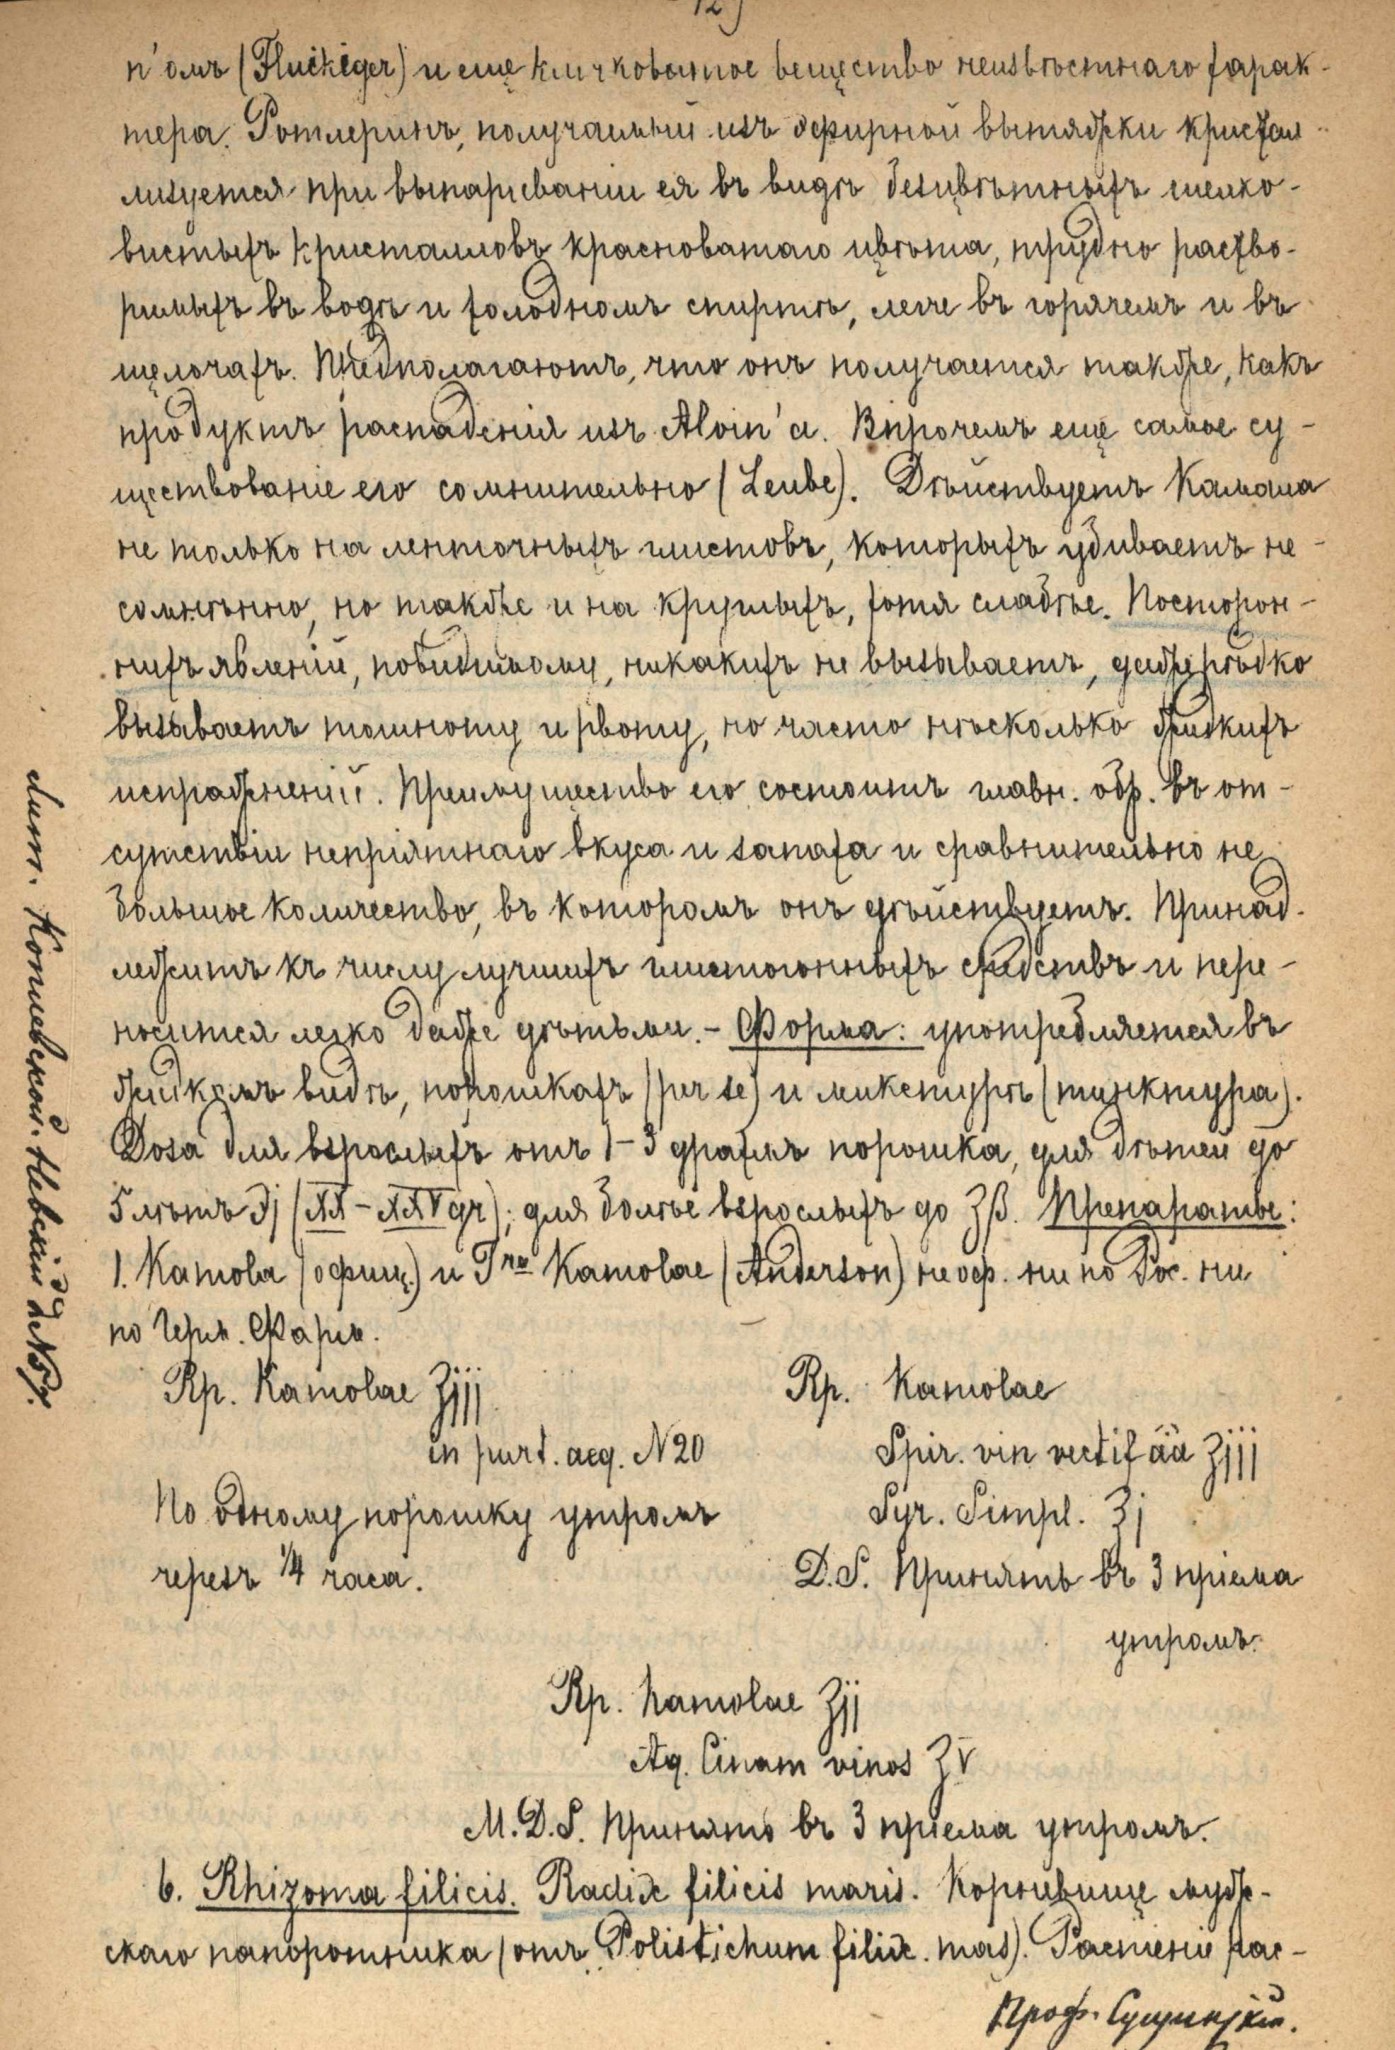 12)
n'омъ (Fluckiger) и еще клейковатое вещество неизвѣстнаго харак-
тера. Ротлеринъ, получаемый изъ эфирной вытяжки кристал-
лизуется при выпариваніи ея въ видѣ безцвѣтныхъ шелко-
вистыхъ кристалловъ красноватаго цвѣта, трудно раство-
римыхъ въ водѣ и холодномъ спиртѣ, легче въ горячемъ и въ
щелочахъ. Предполагаютъ, что онъ получается также, какъ
продуктъ распаденія изъ Aloin'a. Впрочемъ еще самое су-
ществованіе его сомнительно (Leube). Дѣйствуетъ Камала
не только на ленточныхъ глистовъ, которыхъ убиваетъ не-
сомнѣнно, но также и на круглыхъ, хотя слабѣе. Посторон-
нихъ явленій, повидимому, никакихъ не вызываетъ, даже рѣдко
вызываетъ тошноту и рвоту, но часто нѣсколько жидкихъ
испражненій. Преимущество его состоитъ главн. обр. въ от-
сутствіи непріятнаго вкуса и запаха и сравнительно не
большое количество, въ которомъ онъ дѣйствуетъ. Принад-
лежитъ къ числу лучшихъ глистогонныхъ средствъ и пере-
носится легко даже дѣтьми. - Форма: употребляется въ
жидкомъ видѣ, порошкахъ (per se) и микстурѣ (тинктура).
Доза для взрослыхъ отъ 1-3 драхмъ порошка, для дѣтей до
5 лѣтъ ℈j (XX-XXV gr); для болѣе взрослыхъ до ʒβ. Препараты:
1. Kamola (офиц.) и T-ra Kamolae (Anderson) не оф. ни по Рос. ни
по Герм. Фарм.
Rp. Kamolae ʒjjj
in part. aeq. N20
По одному порошку утромъ
черезъ 1/4 часа.
Rp. Kamolae
Spir. vin rectif āā ʒjjj
Syr. Simpl. ʒj
D.S. Принять въ 3 пріема
утромъ.
Rp. Kamolae ʒjj
Aq. Cinam vinos ʒv
M.D.S. Принять въ 3 пріема утромъ.
6. Rhizoma filicis. Radix filicis maris. Корневище муж-
скаго папоротника (отъ Polistichum filix. mas). Растеніе рас-
Проф. Сущинскій.
Лит. コпиевской. Невскій д №